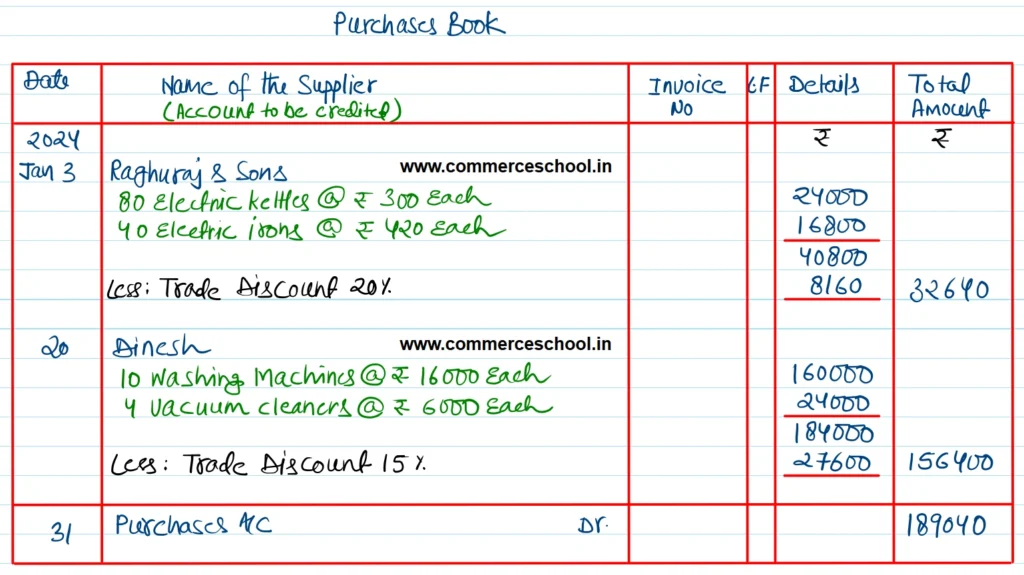 Purchases Book
Date Name of the Supplier Invoice LF Details Total
(Account to be credited) No Amount
2024 ₹ ₹
Jan 3 Raghuraj & Sons www.commerceschool.in
80 Electric kettles @ ₹ 300 Each 24000
40 Electric irons @ ₹ 420 Each 16800
40800
Less: Trade Discount 20% 8160 32640
20 Dinesh www.commerceschool.in
10 Washing Machines @ ₹ 16000 Each 160000
4 Vacuum cleaners @ ₹ 6000 Each 24000
184000
Less: Trade Discount 15% 27600 156400
31 Purchases A/C Dr. 189040